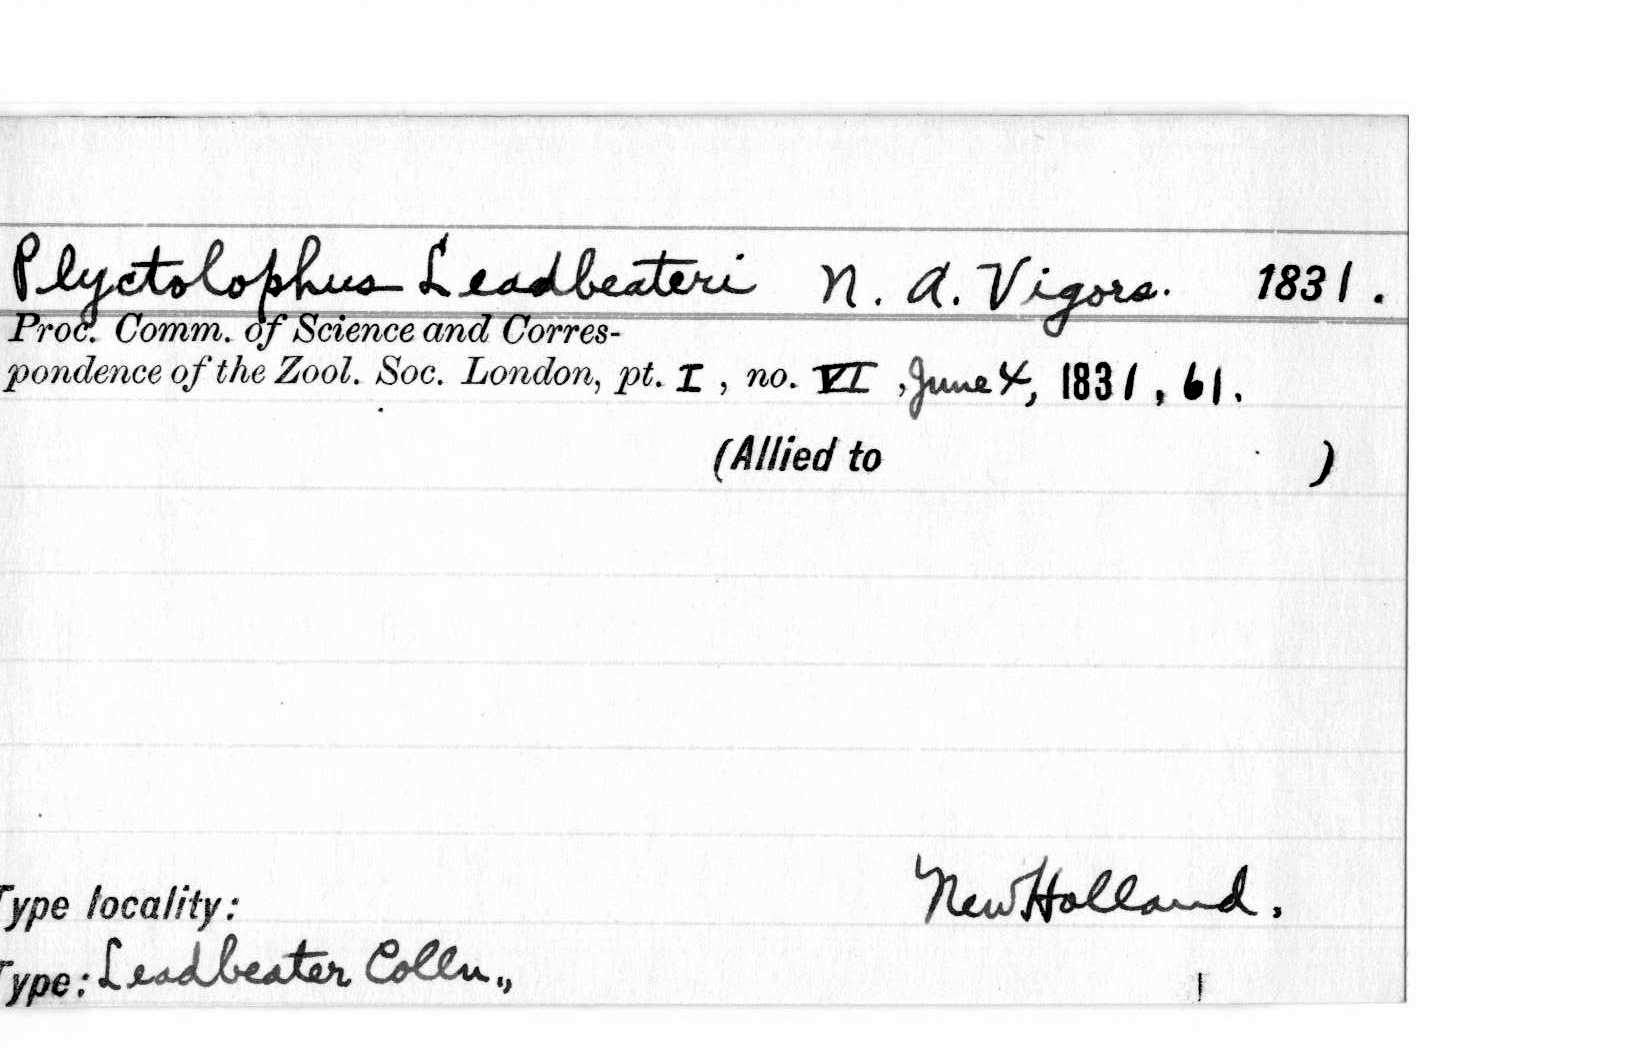 Plyctolophus Leadbeateri N. A. Vigors. 1831.
Proc. Comm. of Science and Corres-
pondence of the Zool. Soc. London, pt. I, no. VI, June 4, 1831, 61.
(Allied to )
New Holland.
Type locality:
Type: Leadbeater Colln.,